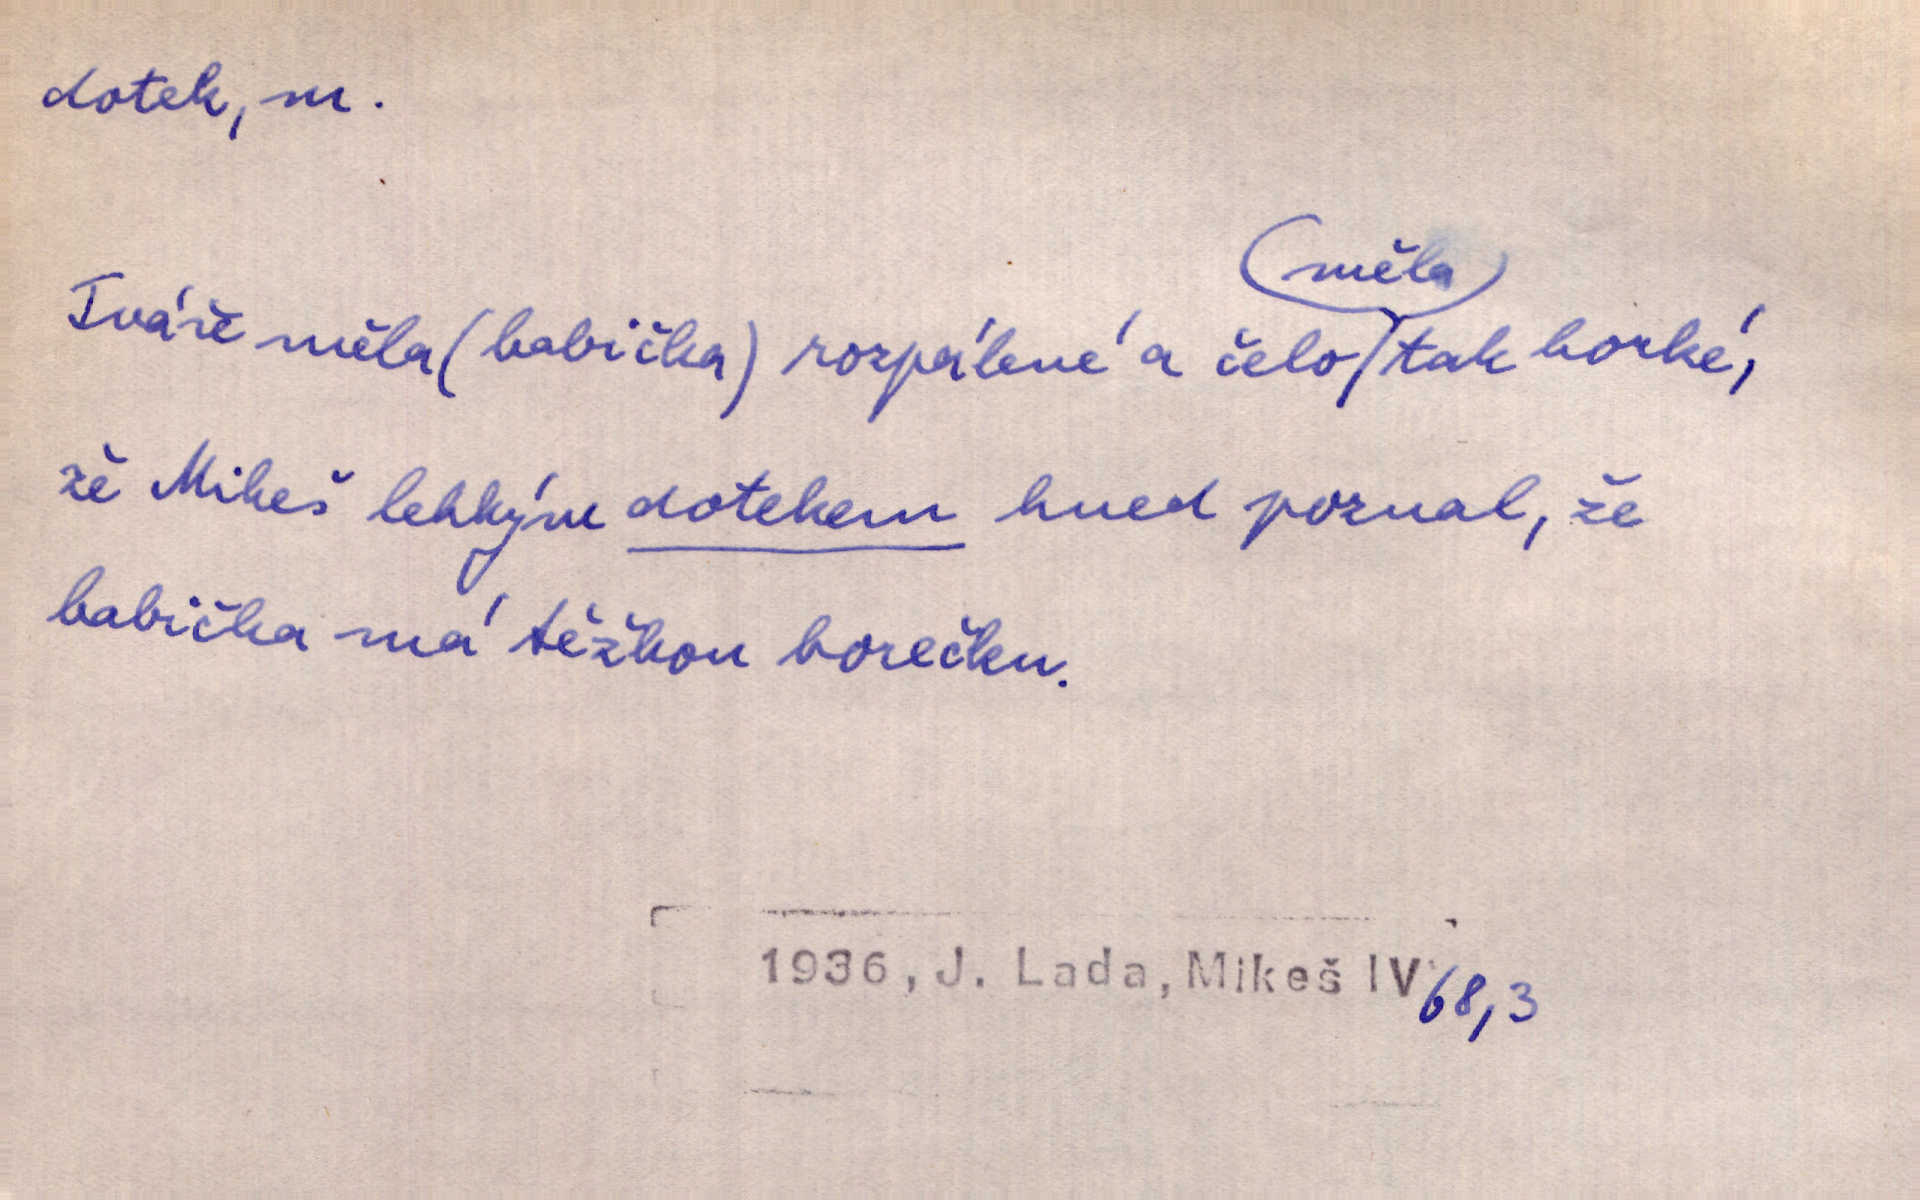 dotek, m.
měla
Tváře měla (babička) rozpálené a čelo tak horké,
že Mikeš lehkým dotekem hned poznal, že
babička má těžkou horečku.
1936, J. Lada, Mikeš IV
68,3